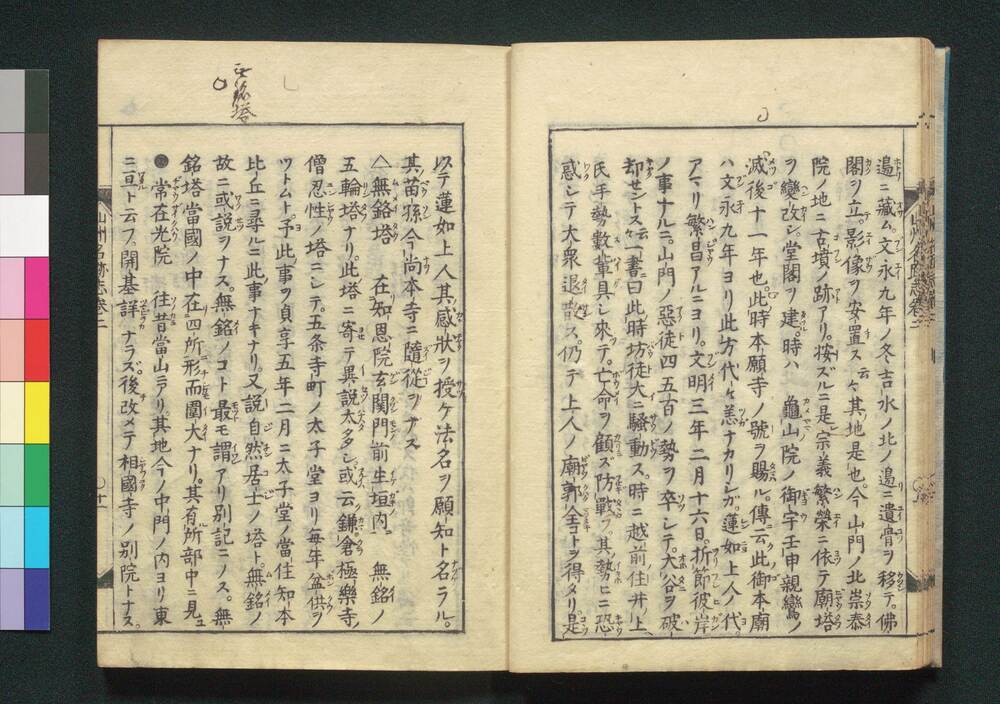 邉ニ藏ム。文永九年ノ冬吉水ノ北ノ邉ニ遺骨ヲ移テ。佛
閣ヲ立。影像ヲ安置ス云々其地是也。今山門ノ北崇泰
院ノ地ニ古墳ノ跡アリ。按ズルニ是宗義繁榮ニ依テ廟塔
ヲ變改シ。堂閣ヲ建。時ハ 龜山院ノ御宇壬申親鸞ノ
滅後十一年也。此時本願寺ノ號ヲ賜ル。傳云此御本廟
ハ文永九年ヨリ此方代々恙ナカリシガ。蓮如上人ノ代。
アマリ繁昌アルニヨリ。文明三年二月十六日。折節彼岸
ノ事ナルニ。山門ノ惡徒四五百ノ勢ヲ卒シテ。大谷ヲ破
却セントス云々一書曰此時坊徒大ニ騒動ス。時ニ越前ノ住井ノ上
氏手勢數輩具シ來テ。亡命ヲ顧ズ防戰フ其勢ヒニ恐
惑シテ大衆退㪚ス。仍テ上人ノ廟郭全コトヲ得タリ。是
以テ蓮如上人其感狀ヲ授ケ法名ヲ願知ト名ラル。
其苗孫今尚本寺ニ隨從ヲナス
無銘塔 在知恩院玄関門前生垣内 無銘ノ
五輪塔ナリ。此塔ニ寄テ異説太タ多シ。或云鎌倉極樂寺ノ
僧忍性ノ塔ニシテ。五条寺町ノ太子堂ヨリ毎年盆供ヲ
ツトムト。予此事ヲ貞享五年二月ニ太子堂ノ當住知本
比丘ニ尋ルニ此事ナキナリ。又説自然居士ノ塔ト。無銘ノ
故ニ或説ヲナス。無銘ノコト最モ謂アリ別記ニノス。無
銘塔當國ノ中在四所形而圍大ナリ。其有所部中ニ見ユ
● 常在光院 往昔當山ニアリ。其地今ノ中門ノ内ヨリ東
ニ亘ト云フ。開基詳ナラズ。後改メテ相國寺ノ別院トナス。
無銘塔
山州名跡志巻二
十一